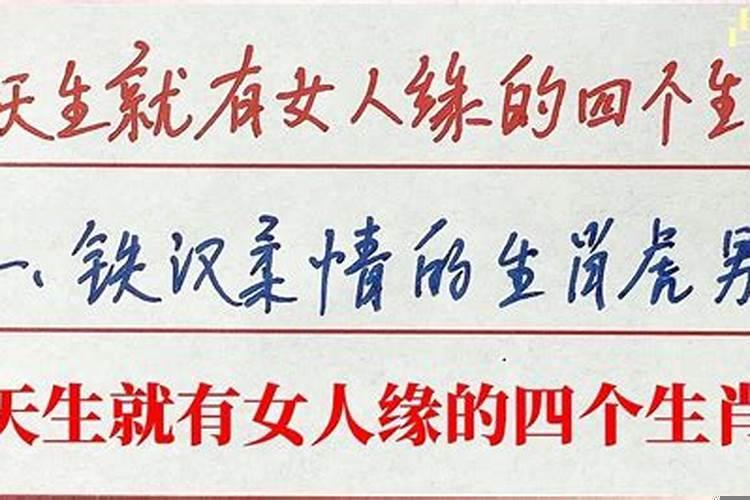 天生就有女人缘的四个生
一、铁汉柔情的生肖虎男
天生就有女人缘的四个生肖